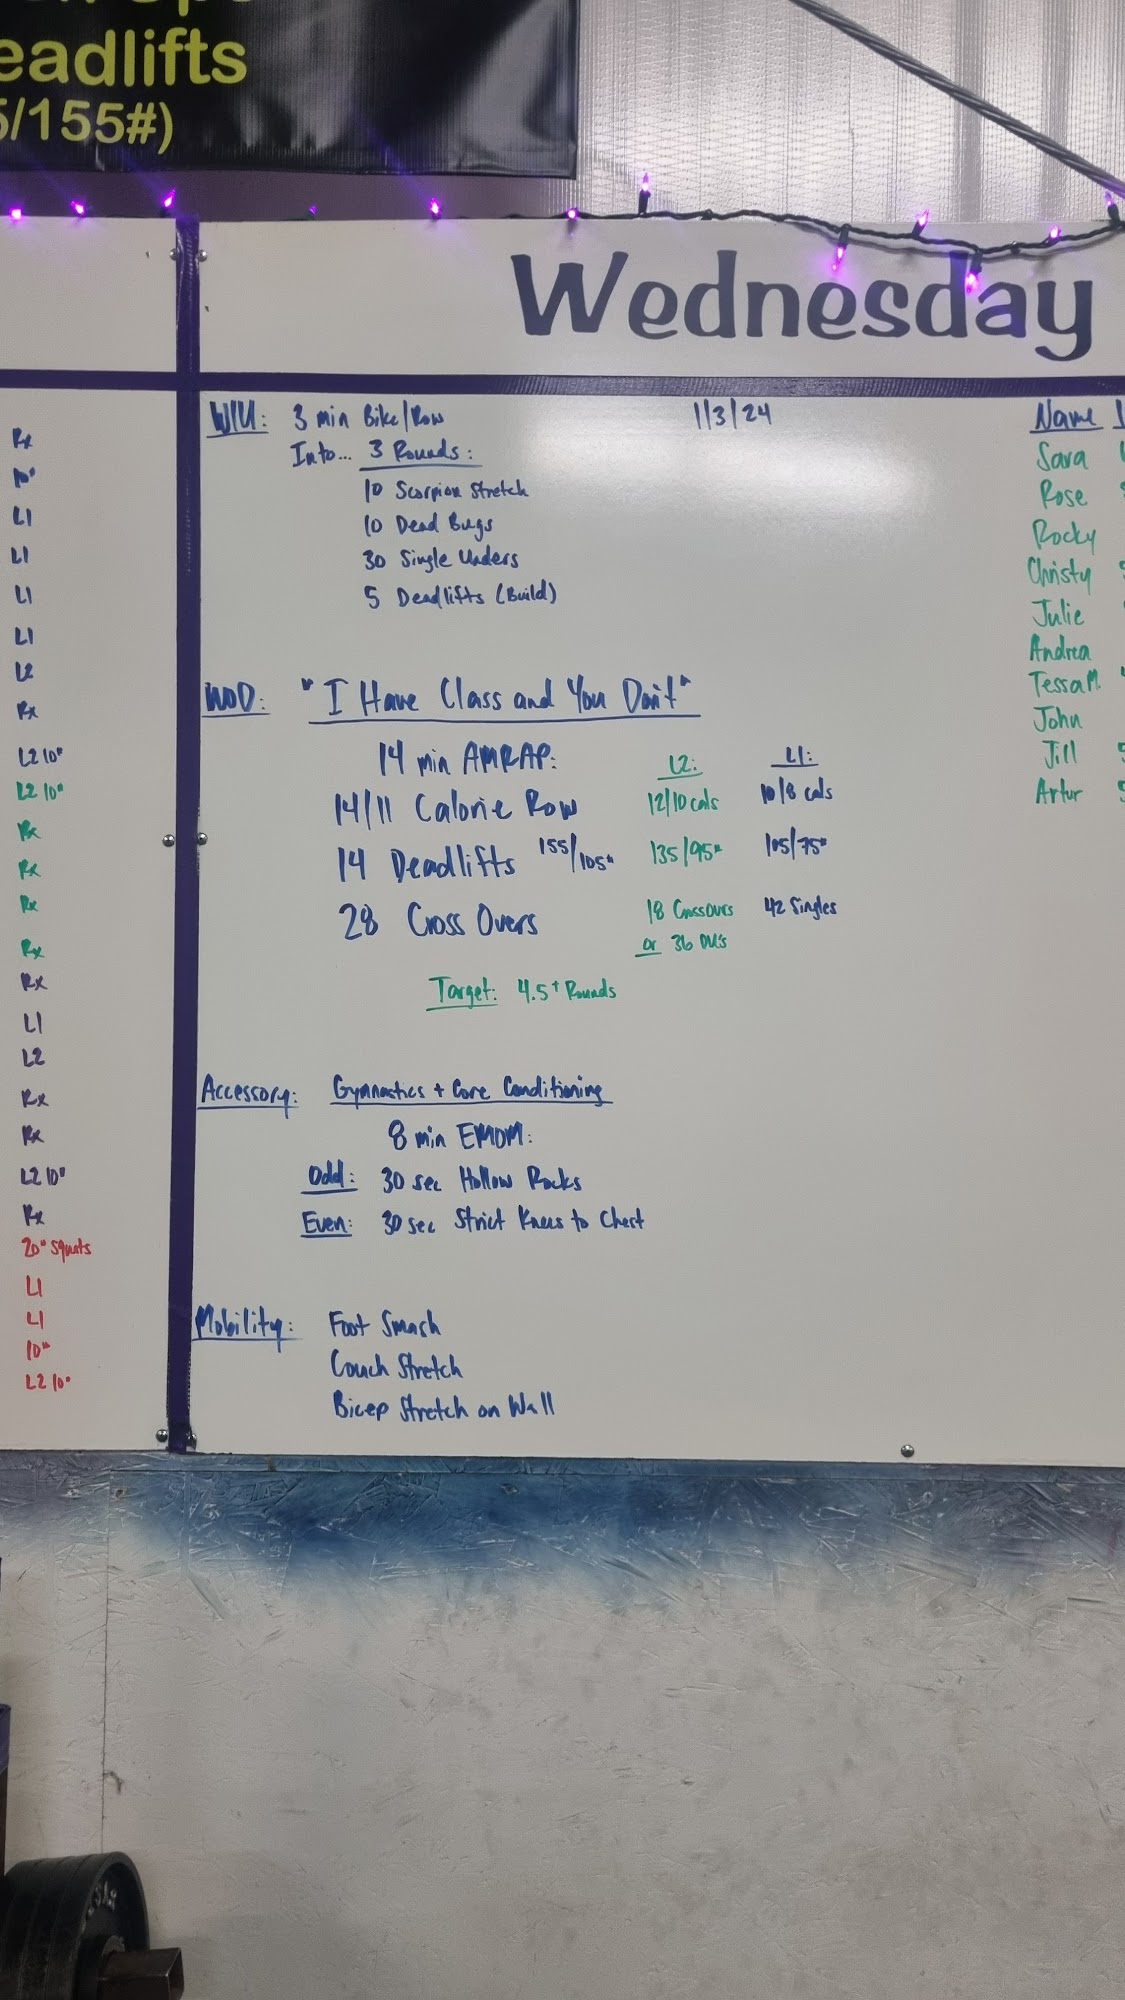 eadlifts
5/155#)
Wednesday
Rx
10#
L1
L1
L1
L1
L2
Rx
L2 10#
L2 10#
Rx
Rx
Rx
Rx
Rx
L1
L2
Rx
Rx
L2 10#
Rx
20# Squats
L1
L1
10#
L2 10#
W/U: 3 min Bike/Row 1/3/24
Into... 3 Rounds:
10 Scorpion Stretch
10 Dead Bugs
30 Single Unders
5 Deadlifts (Build)
WOD: "I Have Class and You Don't"
14 min AMRAP: L2: L1:
14/11 Calorie Row 12/10 cals 10/8 cals
14 Deadlifts 155/105# 135/95# 105/75#
28 Cross Overs 18 Crossovers 42 Singles
or 36 DU's
Target: 4.5+ Rounds
Accessory: Gymnastics + Core Conditioning
8 min EMOM:
Odd: 30 sec Hollow Rocks
Even: 30 sec Strict Knees to Chest
Mobility: Foot Smash
Couch Stretch
Bicep Stretch on Wall
Name
Sara
Rose
Rocky
Christy
Julie
Andrea
Tessa M.
John
Jill
Artur